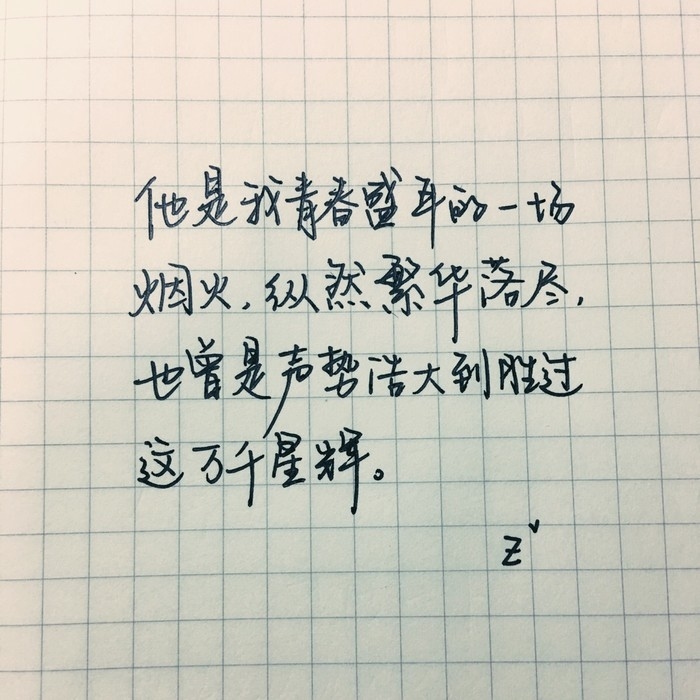 他是我青春盛年的一场
烟火,纵然繁华落尽,
也曾是声势浩大到胜过
这万千星辉。
Z